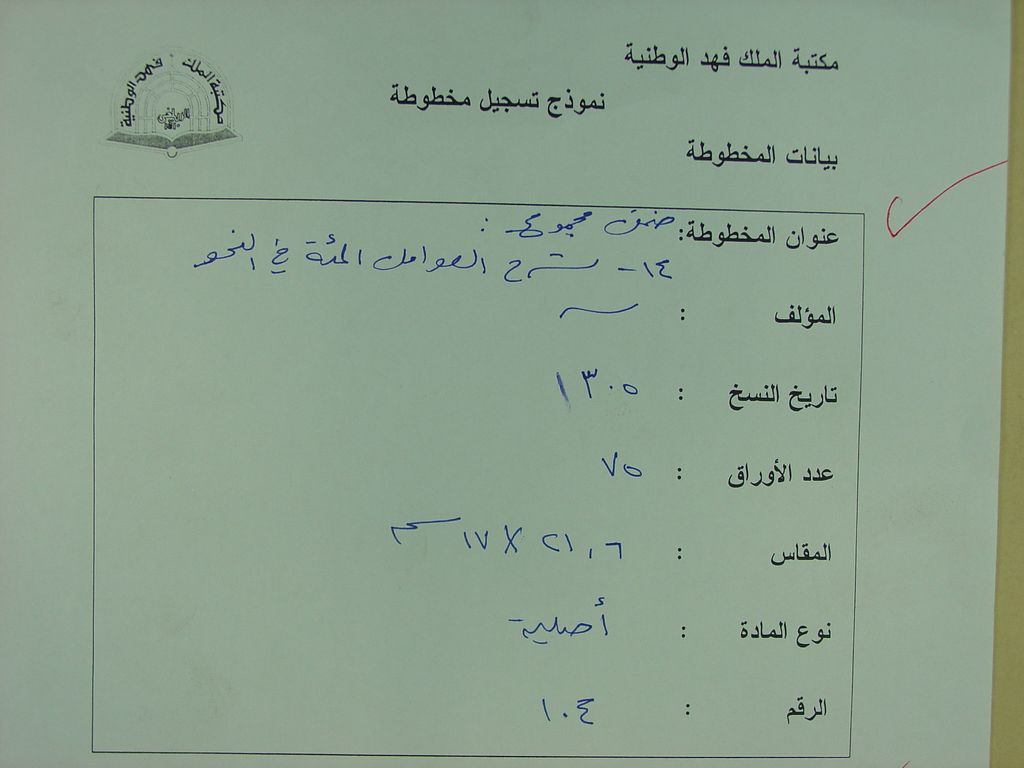 مكتبة الملك فهد الوطنية
مكتبة الملك فهد الوطنية
الرياض
نموذج تسجيل مخطوطة
بيانات المخطوطة
عنوان المخطوطة: ضمن مجموع :
١٤- شرح العوامل المئة في النحو
المؤلف :
تاريخ النسخ : ١٣٠٥
عدد الأوراق : ٧٥
المقاس : ٢١,٦ X ١٧ سم
نوع المادة : أصلية
الرقم : ١٠٤